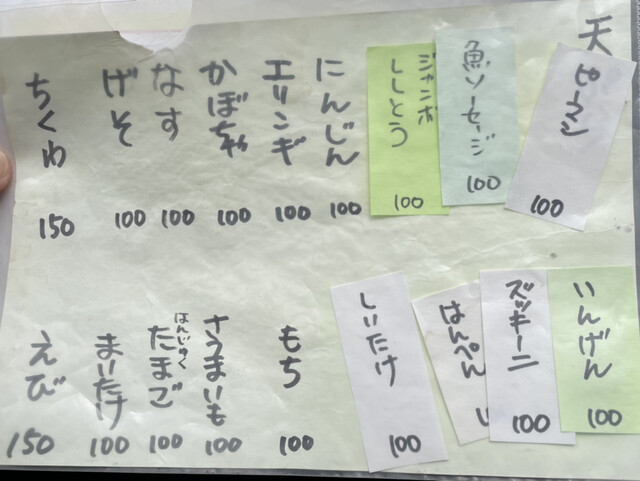 天
ピーマン 100
魚ソーセージ 100
ジャンボ
ししとう 100
にんじん 100
エリンギ 100
かぼちゃ 100
なす 100
げそ 100
ちくわ 150
いんげん 100
ズッキーニ 100
はんぺん
しいたけ 100
もち 100
さつまいも 100
はんじゅく
たまご 100
まいたけ 100
えび 150